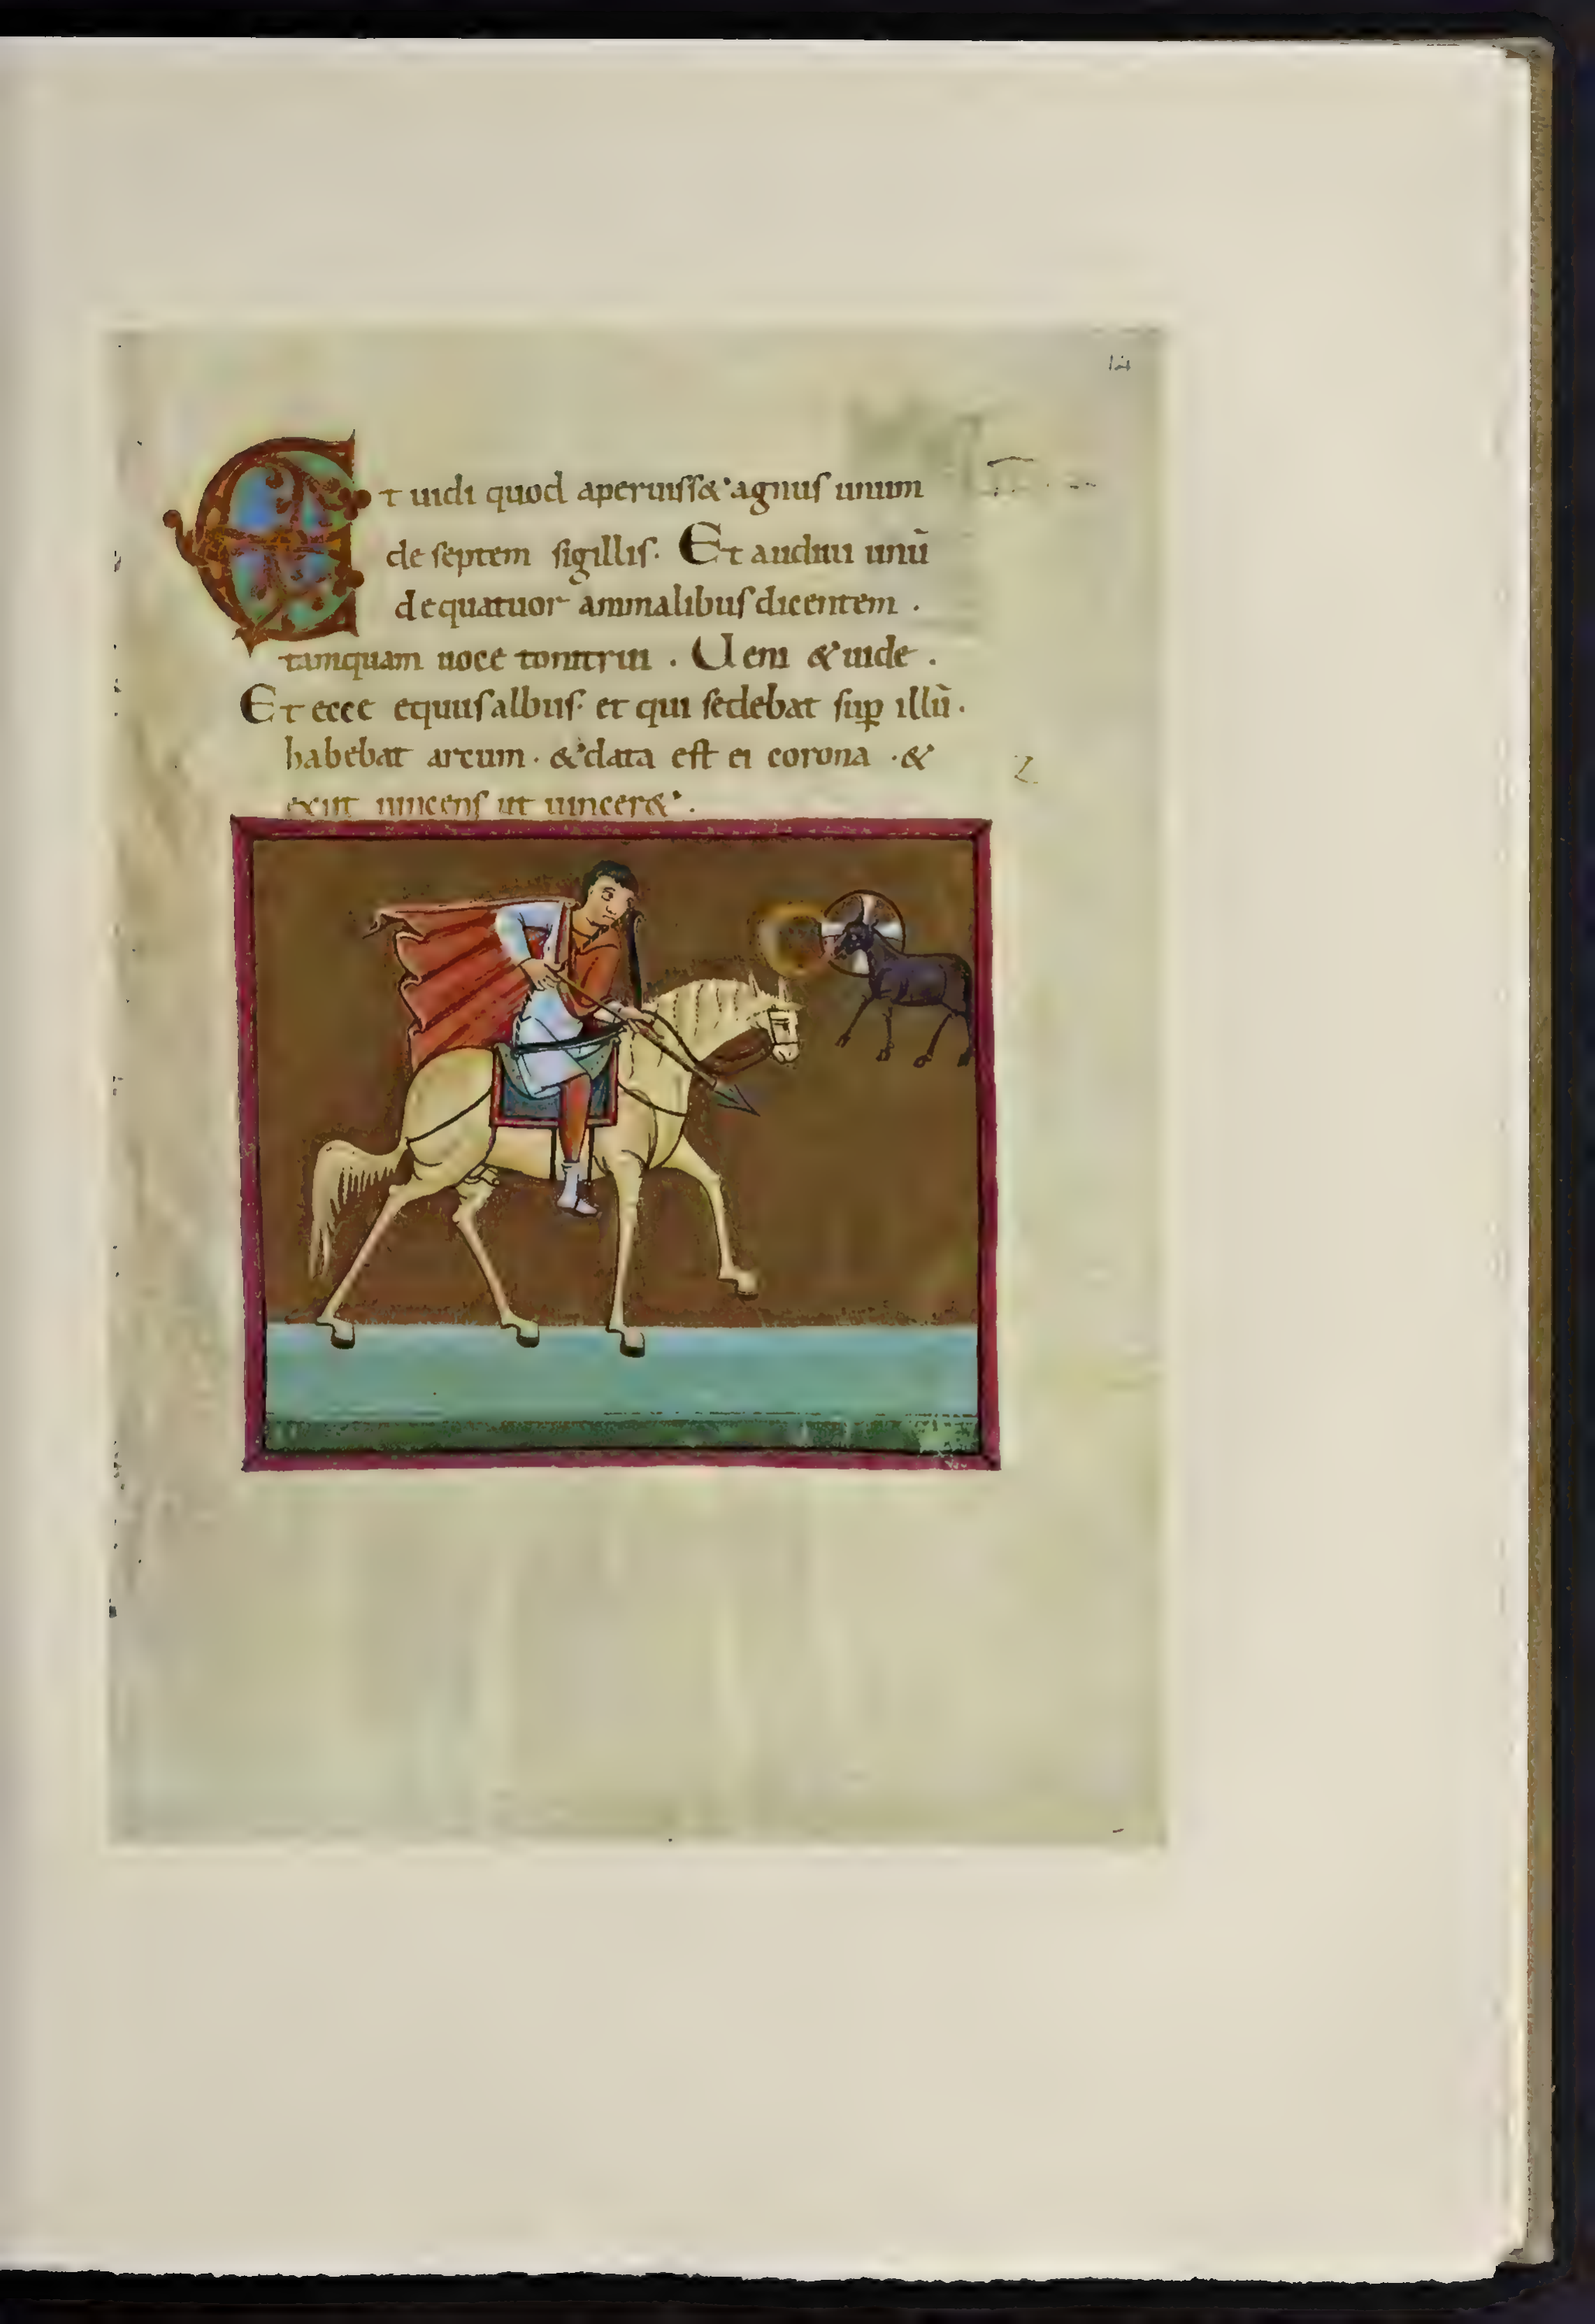 14
Et uidi quod aperuiss&agnus unum
de septem sigillis. Et audiui unū
de quatuor animalibus dicentem .
tamquam uoce tonitrui . Ueni & uide .
Et ecce equus albus. et qui sedebat sup illū .
habebat arcum . & data est ei corona . &
exiit uincens ut uincer& .